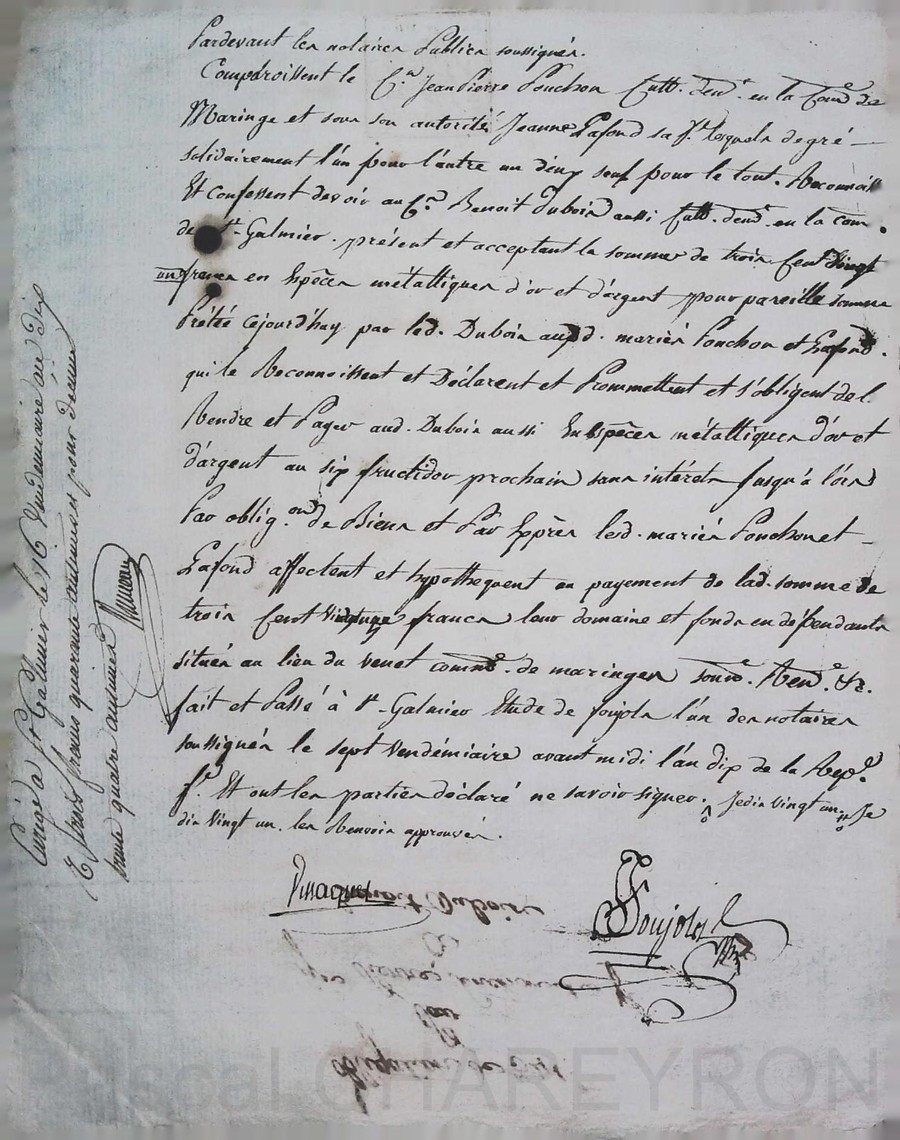 Pardevant les notaires Publics soussignés.
Comparoissent le C.en Jean Pierre Ponchon Cult. dem.t en la Com.e de
Maringe et sous son autorité Jeanne Lafond sa f.e lesquels de gré
solidairement l'un pour l'autre un deux seul pour le tout. Reconnoiss
Et confessent devoir au C.en Benoit Dubois aussi Cult. dem.t en la com.
de St. Galmier. présent et acceptant la somme de trois Cent Vingt
un francs en Espèces métalliques d'or et d'argent pour pareille somme
Prêtée cejourd'huy par led. Dubois auxd. mariés Ponchon et Lafond.
qui le Reconnoissent et Déclarent et Prommettent et s'obligent de l
Rendre et Payer aud. Dubois aussi En Espèces métalliques d'or et
d'argent au six fructidor prochain sans intérets Jusqu'à lors
Par oblig.on de Biens et Par Exprès lesd. mariés Ponchon et
Lafond affectent et hypothequent au payement de lad. somme de
trois Cent francs leur domaine et fonds en dépendants
situés au lieu du venet comm.e de maringes
fait et Passé à St. Galmier Etude de Soujols l'un des notaires
soussignés le sept Vendémiaire avant midi l'an dix de la Rep.e
f.e Et ont les parties déclaré ne savoir signer. Je dis vingt un. Je
dis Vingt un. les Renvois approuvés.
Soujols
Benoit Dubois
Enrégé à St Galmier le 16 Vendemiaire an dix
R trois francs quarante centimes pour
trente quatre centimes
Pascal CHAREYRON